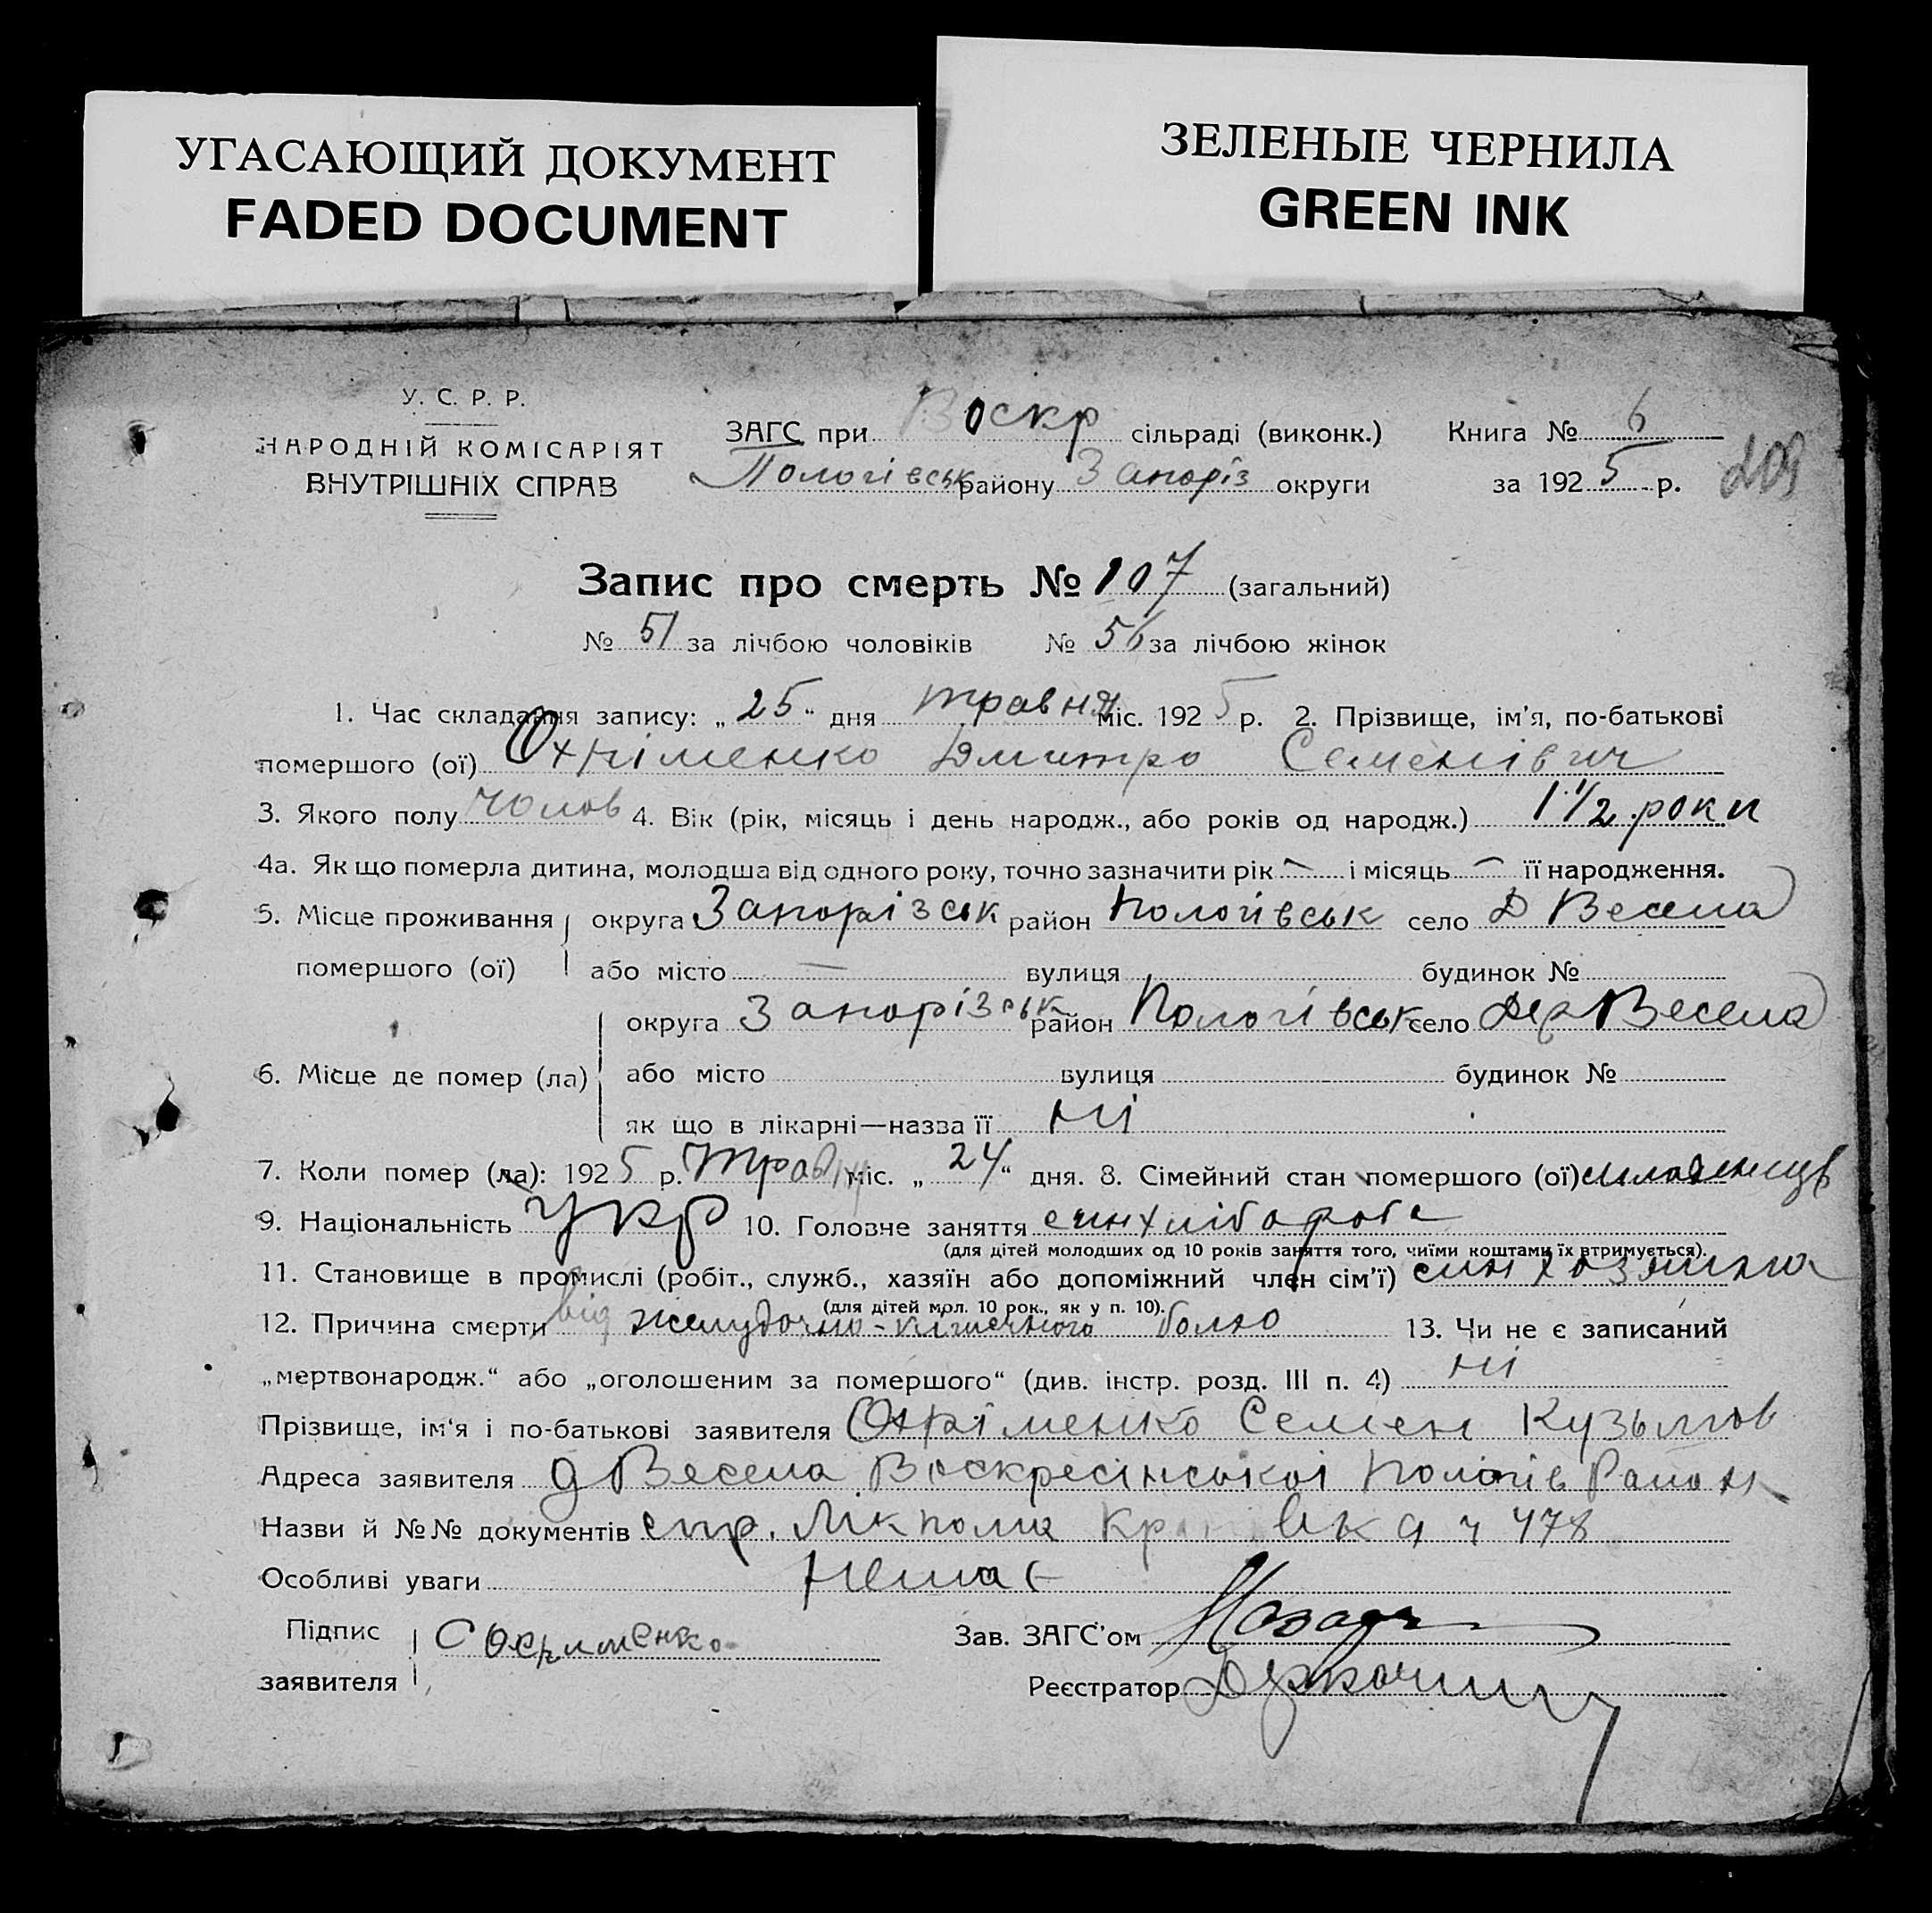 УГАСАЮЩИЙ ДОКУМЕНТ
FADED DOCUMENT
ЗЕЛЕНЫЕ ЧЕРНИЛА
GREEN INK
У. С. Р. Р.
НАРОДНІЙ КОМІСАРІЯТ
ВНУТРІШНІХ СПРАВ
ЗАГС при Воскр сільраді (виконк.) Книга № 6
Пологівськ району Запоріз округи за 1925 р.
209
Запис про смерть № 107 (загальний)
№ 51 за лічбою чоловіків № 56 за лічбою жінок
1. Час складання запису: „25“ дня травня міс. 1925 р. 2. Прізвище, ім’я, по-батькові
помершого (ої) Охріменко Дмитро Семенівич
3. Якого полу чолов 4. Вік (рік, місяць і день народж., або років од народж.) 1 1/2 роки
4а. Як що померла дитина, молодша від одного року, точно зазначити рік — і місяць — її народження.
5. Місце проживання округа Запорізськ район Пологівськ село Д Весела
помершого (ої) або місто — вулиця будинок №
округа Запорізськ район Пологівськ село Дер Весела
6. Місце де помер (ла) або місто вулиця будинок №
як що в лікарні—назва її ні
7. Коли помер (ла): 1925 р. Травня міс. „24“ дня. 8. Сімейний стан помершого (ої)
9. Національність Укр 10. Головне заняття син хлібароба
(для дітей молодших од 10 років заняття того, чиїми коштами їх втримується).
11. Становище в промислі (робіт., служб., хазяїн або допоміжний член сім’ї) син хозяіна
(для дітей мол. 10 рок., як у п. 10).
12. Причина смерти від желудочно-кішечного болю 13. Чи не є записаний
„мертвонародж.“ або „оголошеним за помершого“ (див. інстр. розд. III п. 4) ні
Прізвище, ім‘я і по-батькові заявителя Охріменко Семен Кузьмов
Адреса заявителя д Весела Воскресінськоі Пологів Район
Назви й №№ документів спр. Лікпома ч 478
Особливі уваги Немає
Підпис С Охрименко Зав. ЗАГС’ом
заявителя Реєстратор